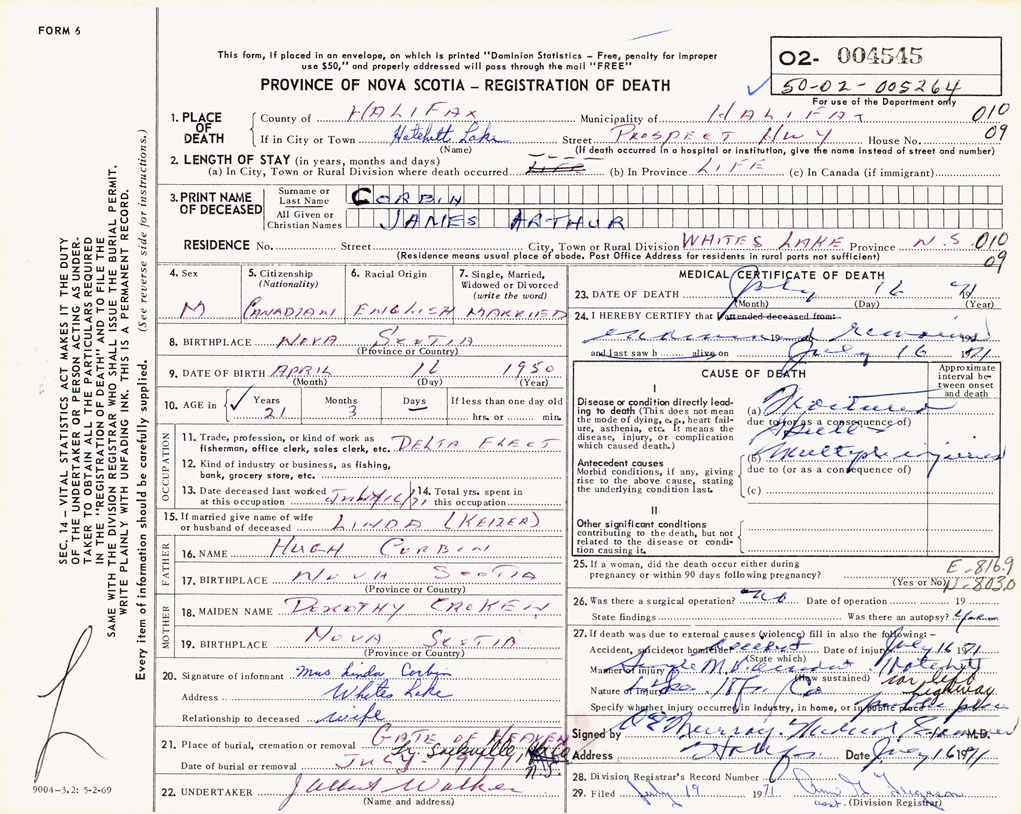 FORM 6
This form, if placed in an envelope, on which is printed "Dominion Statistics – Free, penalty for improper
use $50," and properly addressed will pass through the mail "FREE"
PROVINCE OF NOVA SCOTIA – REGISTRATION OF DEATH
02- 004545
50-02-005264
For use of the Department only
1. PLACE OF DEATH
County of HALIFAX Municipality of HALIFAX 010
If in City or Town Hatchett Lake Street PROSPECT HWY House No. 09
(Name) (If death occurred in a hospital or institution, give the name instead of street and number)
2. LENGTH OF STAY (in years, months and days)
(a) In City, Town or Rural Division where death occurred LIFE (b) In Province LIFE (c) In Canada (if immigrant)
3. PRINT NAME OF DECEASED
Surname or Last Name CORBIN
All Given or Christian Names JAMES ARTHUR
RESIDENCE No. Street City, Town or Rural Division WHITES LAKE Province N.S 010
(Residence means usual place of abode. Post Office Address for residents in rural parts not sufficient) 09
4. Sex M
5. Citizenship (Nationality) CANADIAN
6. Racial Origin ENGLISH
7. Single, Married, Widowed or Divorced (write the word) MARRIED
8. BIRTHPLACE NOVA SCOTIA
(Province or Country)
9. DATE OF BIRTH APRIL 16 1950
(Month) (Day) (Year)
10. AGE in Years 21 Months 3 Days – If less than one day old hrs. or min.
OCCUPATION
11. Trade, profession, or kind of work as
fisherman, office clerk, sales clerk, etc. DELTA ELECT
12. Kind of industry or business, as fishing,
bank, grocery store, etc.
13. Date deceased last worked at this occupation JULY/16/71
14. Total yrs. spent in this occupation
15. If married give name of wife
or husband of deceased LINDA (KEIZER)
FATHER
16. NAME HUGH CORBIN
17. BIRTHPLACE NOVA SCOTIA
(Province or Country)
MOTHER
18. MAIDEN NAME DOROTHY CROKEN
19. BIRTHPLACE NOVA SCOTIA
(Province or Country)
20. Signature of informant Mrs Linda Corbin
Address Whites Lake
Relationship to deceased wife
21. Place of burial, cremation or removal GATE OF HEAVEN
Sackville
Date of burial or removal JULY 19/1971 N.S.
22. UNDERTAKER Walker
(Name and address)
MEDICAL CERTIFICATE OF DEATH
23. DATE OF DEATH July 16 1971
(Month) (Day) (Year)
24. I HEREBY CERTIFY that I attended deceased from:
examined 19 remains
and last saw h alive on July 16 1971
CAUSE OF DEATH
Approximate interval between onset and death
I
Disease or condition directly leading to death (This does not mean the mode of dying, e.g., heart failure, asthenia, etc. It means the disease, injury, or complication which caused death.)
(a) Fractured
due to (or as a consequence of)
Skull
(b) multiple injuries
due to (or as a consequence of)
(c)
Antecedent causes
Morbid conditions, if any, giving rise to the above cause, stating the underlying condition last.
II
Other significant conditions contributing to the death, but not related to the disease or condition causing it.
25. If a woman, did the death occur either during
pregnancy or within 90 days following pregnancy?
(Yes or No)
E-816.9
N-803.0
26. Was there a surgical operation? no Date of operation 19
State findings Was there an autopsy?
27. If death was due to external causes (violence) fill in also the following:–
Accident, suicide, or homicide accident Date of injury July 16 1971
(State which)
Manner of injury Single M.V. accident Hatchett
(How sustained)
Nature of injury Lake Hfx. Co car left highway
Specify whether injury occurred in industry, in home, or in public place public place
Signed by Murray, Medical Examiner M.D.
Address Halifax Date July 16 1971
28. Division Registrar's Record Number
29. Filed July 19 1971 Ferguson
asst. (Division Registrar)
SEC. 14 – VITAL STATISTICS ACT MAKES IT THE DUTY
OF THE UNDERTAKER OR PERSON ACTING AS UNDER-
TAKER TO OBTAIN ALL THE PARTICULARS REQUIRED
IN THE "REGISTRATION OF DEATH" AND TO FILE THE
SAME WITH THE DIVISION REGISTRAR WHO SHALL ISSUE THE BURIAL PERMIT.
WRITE PLAINLY WITH UNFADING INK. THIS IS A PERMANENT RECORD.
Every item of information should be carefully supplied. (See reverse side for instructions.)
9004-3.2: 5-2-69